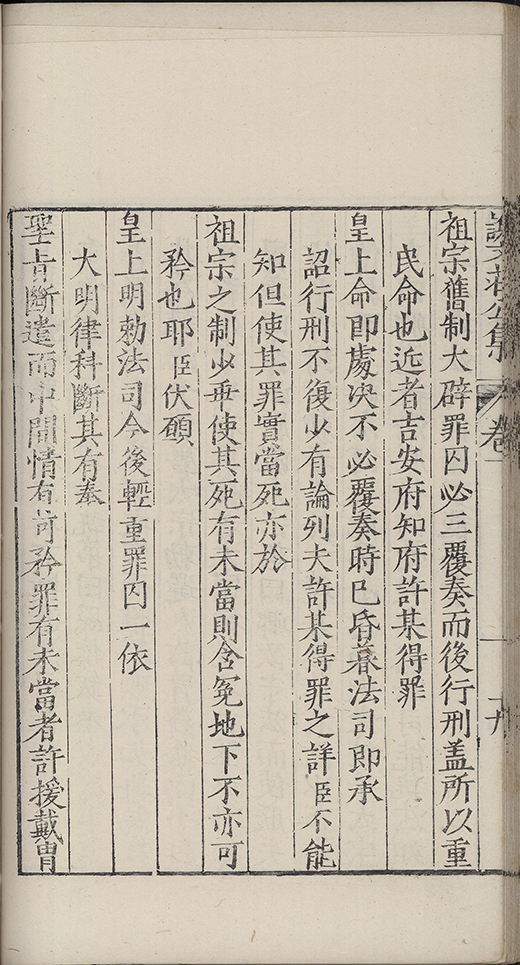 祖宗舊制大辟罪囚必三覆奏而後行刑盖所以重
民命也近者吉安府知府許某得罪
皇上命即處决不必覆奏時已昏暮法司即承
詔行刑不復少有論列夫許某得罪之詳臣不能
知但使其罪實當死亦於
祖宗之制少乖使其死有未當則含冤地下不亦可
矜也耶臣伏願
皇上明勅法司今後輕重罪囚一依
大明律科斷其有奉
聖旨斷遣而中間情有可矜罪有未當者許援戴胄